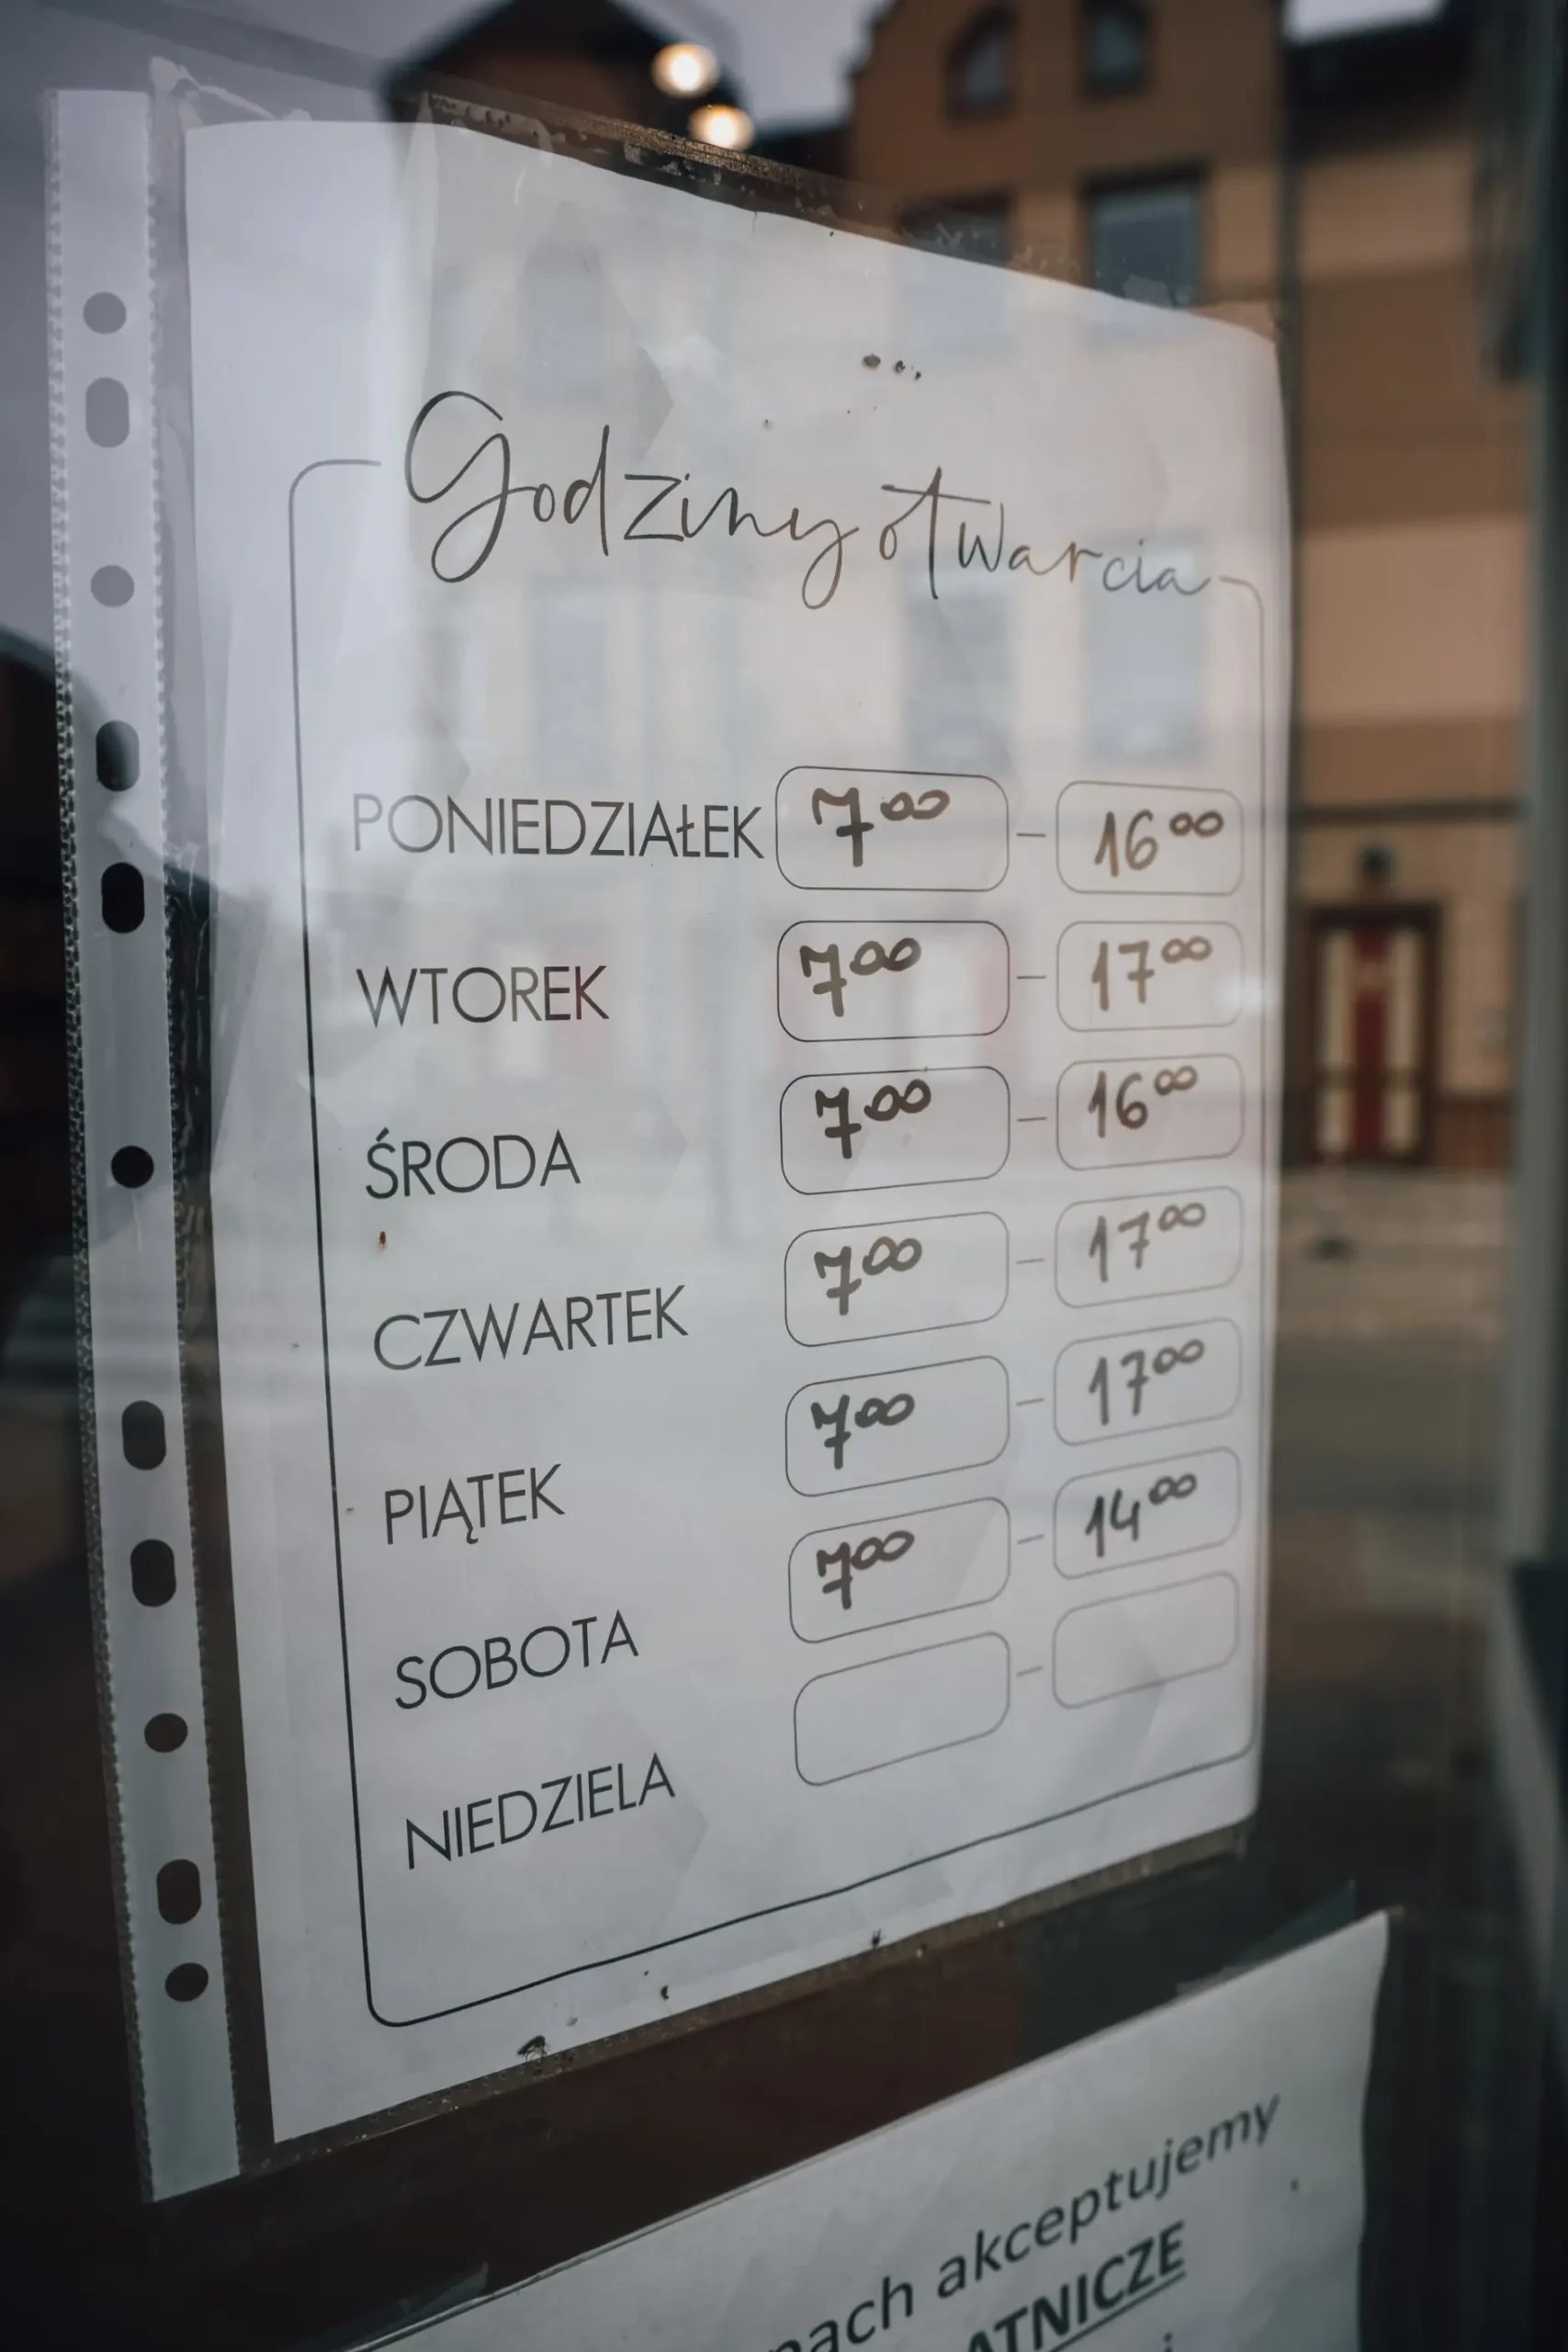 Godziny otwarcia
PONIEDZIAŁEK 7⁰⁰ - 16⁰⁰
WTOREK 7⁰⁰ - 17⁰⁰
ŚRODA 7⁰⁰ - 16⁰⁰
CZWARTEK 7⁰⁰ - 17⁰⁰
PIĄTEK 7⁰⁰ - 17⁰⁰
SOBOTA 7⁰⁰ - 14⁰⁰
NIEDZIELA -
akceptujemy